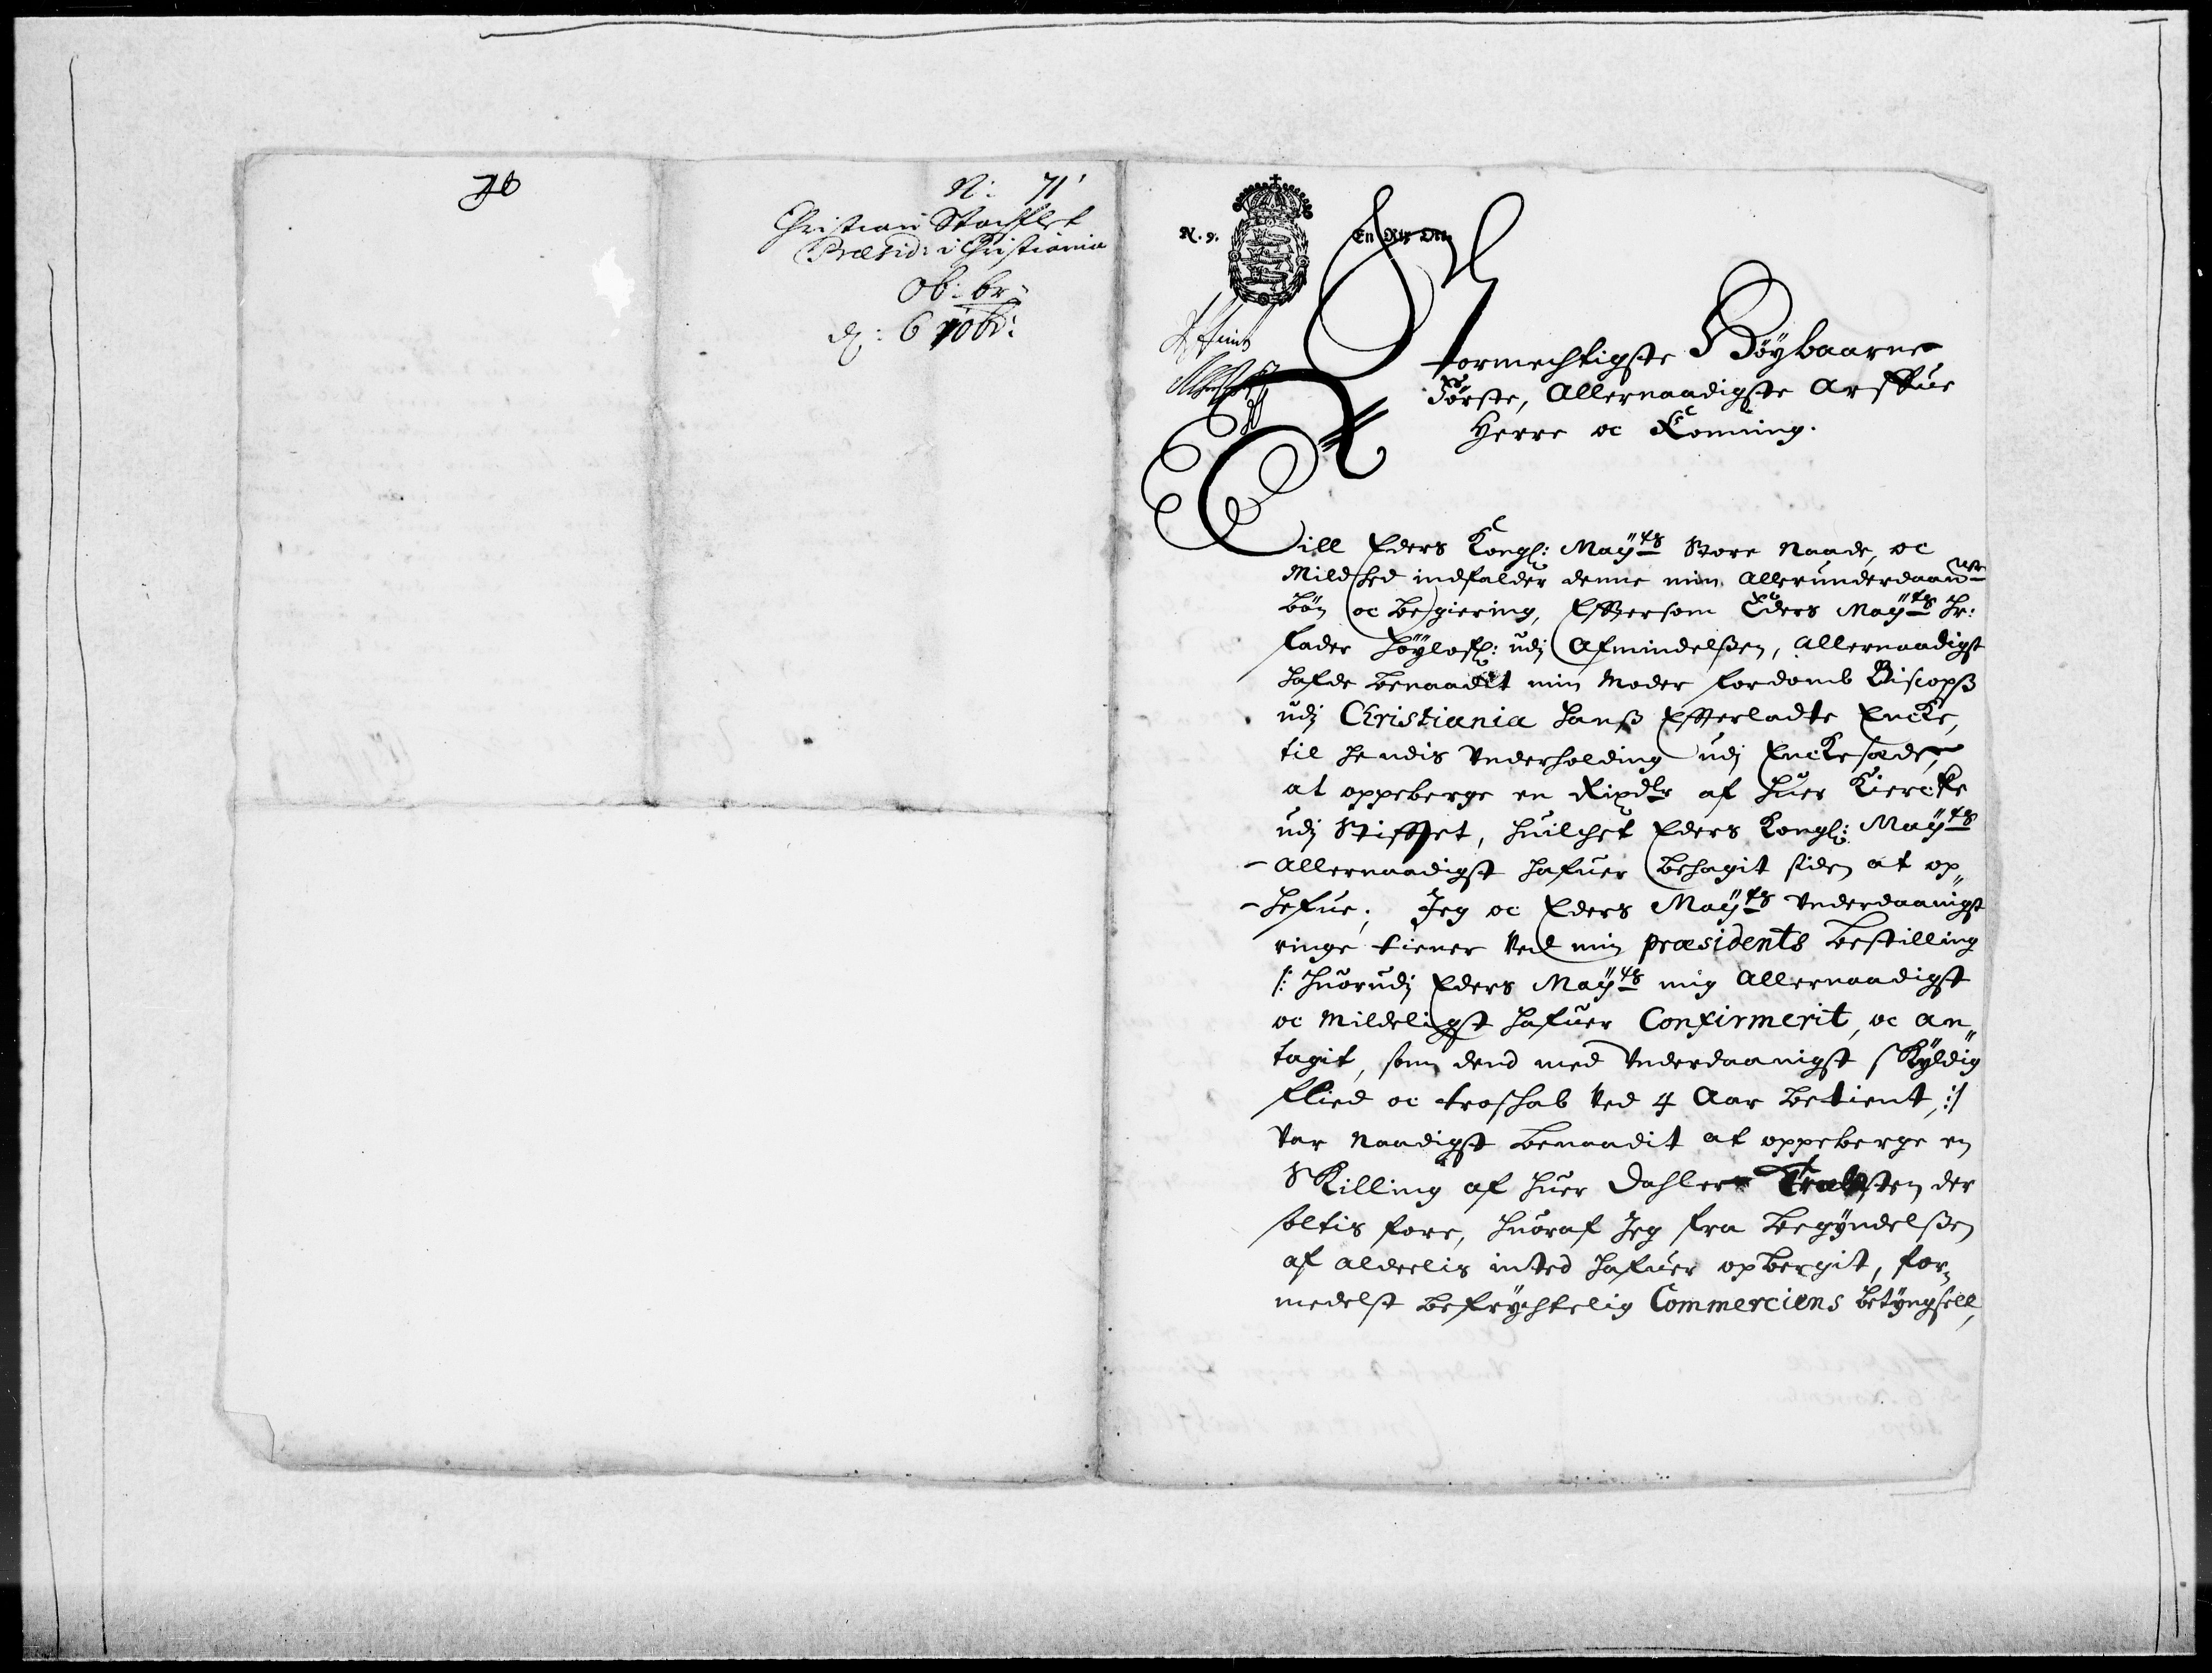 70
N: 71
Christian Stochflet
Præsid: i Christiania
Ob: br:
d: 6 9obr:
N. 9. En Rix Ort
Stormechtigste Höybaarne
Förste, Allernaadigste Arffue
Herre oc Konning.
Till Eders Kongl: Maÿts Store Naade, oc
Mildhed indfalder denne min Allerunderdaan
bön oc begiering, Efftersom Eders Maÿts Hr:
fader höylofl: udj Afmindelßen, Allernaadigst
hafde benaadit min Moder fordomb Biscopß
udj Christiania hanß Effterladte Encke,
til hendis Underholding udj Enckesæde,
at oppeberge en Rixdlr af huer Kiercke
udj Stifftet, huilchet Eders Kongl: Maÿts
Allernaadigst hafuer behagit siden at op„
hefue; Jeg oc Eders Maÿts Underdaanigst
ringe tiener Ved min præsidents bestilling
/: huorudj Eders Maÿts mig Allernaadigst
oc Mildeligst hafuer Confirmerit, oc an„
tagit, som dend med Underdaanigst skÿldig
flied oc troskab Ved 4 Aar betient, :/
Var Naadigst benaadit at oppeberge en
Skilling af huer Dahler Trælasten der
soltis fore, huoraf Jeg fra begÿndelßen
af alderlis inted hafuer opbergit, for„
medelst befrÿchtelig Commerciens betÿngsell,